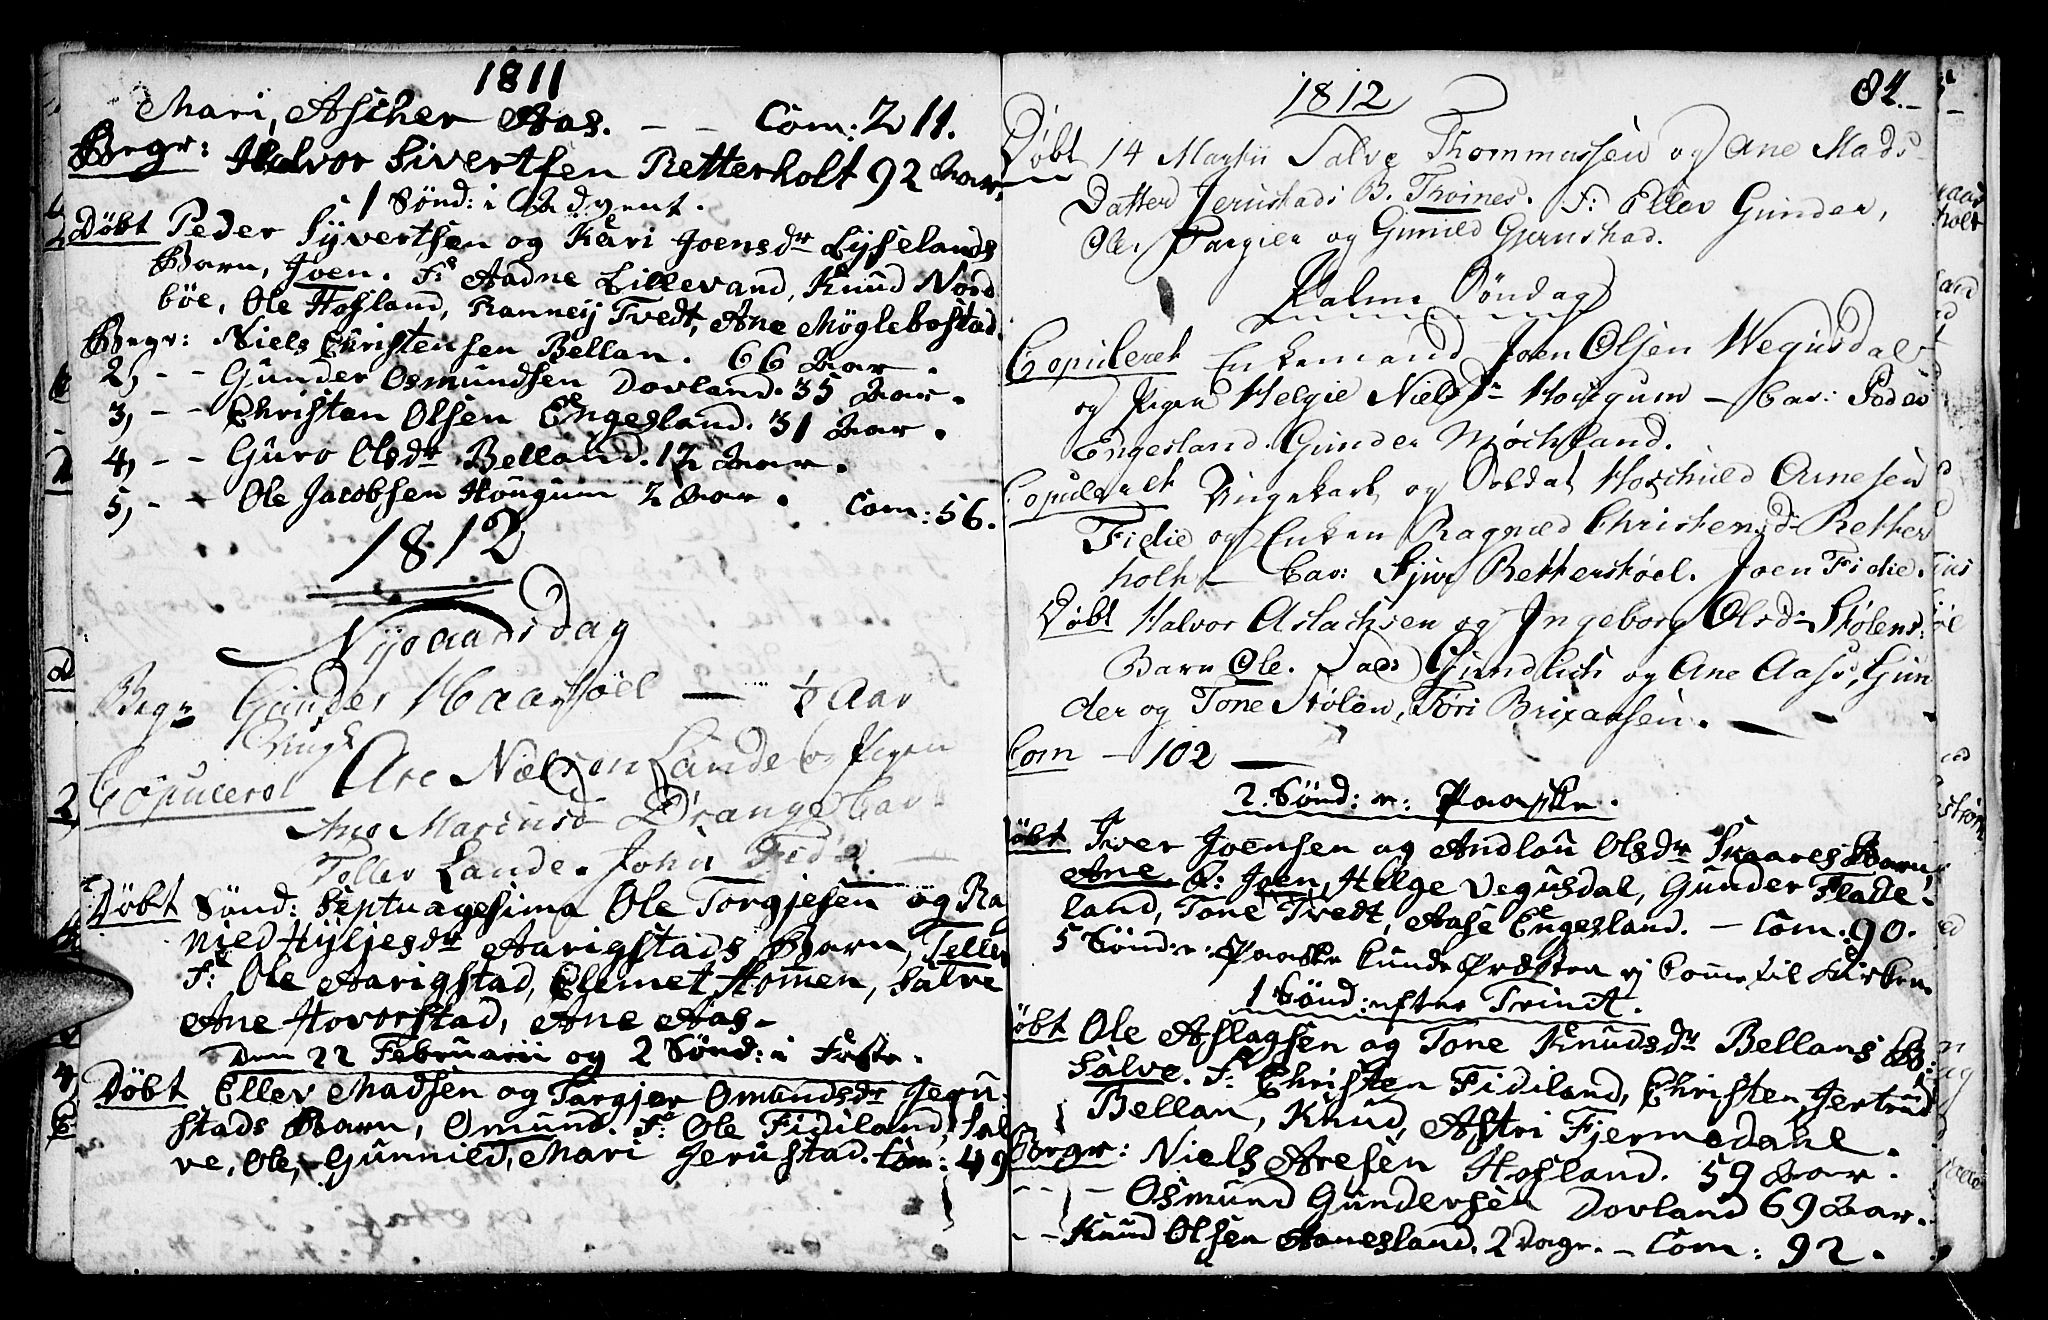 1811
Mari, Ascher Aas. - - Com: 211.
Begr: Halvor Sivertsen Retterholt 92 Aar,
1 Sönd: i Advent.
Döbt Peder Syvertsen og Kari Joensdr Lyselands
Barn, Joen. F: Aadne Lillevand, Knud Nord
böe, Ole Hofland, Ranneij Tvedt, Ane Möglebostad.
Begr: Niels Christensen Bellan. 66 Aar.
2, - - Gunder Osmundsen Dovland. 35 Aar.
3, - - Christen Olsen Engesland. 31 Aar.
4, - - Guro Olsdr Belland. 12 Aar.
5, - - Ole Jacobsen Höugum 2 Aar. Com: 56.
1812
Nyeaarsdag
Begr Gunder Haarsöel — ½ Aar
Ungk
Copuleret Are Nielsen Lande og Pigen
Ane Drange Cav:
Tellev Lande. John Fidie
Döbt Sönd: Septuagesima Ole Torgjesen og Rag
nied Hyljesdr Aarigstads Barn, Tellev
F: Ole Aarigstad, Clemet Hommen, Salve
Ane Hovorstad, Ane Aas-
Den 22 Februarii og 2 Sönd: i Faste.
Döbt Ellev Madsen og Targjer Omundsdr Jeru-
stads Barn, Omund. F: Ole Fidiland, Sal
ve, Ole, Gunnild, Mari Jerustad. Com: 49
1812 84.-
Döbt 14 Martii Salve Thommassen og Ane Mads
Datter Jerustads B. F: Ellev Gunder,
Ole, Targier og Gunild Gjerustad.
Palme Söndag
Copuleret Enkemand Joen Olsen Wegusdal
og Pigen Helgie Nielsdr Hougum — Cav: Peder
Engesland. Gunder
Copuleret Ungekarl og Soldat Hoschuld Arnesen
Fidie og Enken Ragnild Christensdr Retter
holt — Cav: Retterstöel. Joen Fidie.
Döbt Halvor Aslachsen og Ingeborg Olsdr Stölens
Barn Ole. Fadd: og Ane Aas, Gun
der og Tone Stölen, Tori Brixansen.
Com - 102 —
2. Sönd: e: Paaske.
Döbt Iver Joensen og Andlou Olsdr Skaares Barn,
Ane. F: Joen, Helge Vegusdal, Gunder Flade-
land, Tone Tvedt, Aase Engesland. - Com: 90.
5 Sönd: e: Paaske Cunde Præsten ej Comme til Kirken
1 Sönd: efter Trinit.
Döbt Ole Aslagsen og Tone Knudsdr Bellans B:
Salve. F: Christen Fidiland, Christen, Jertrud
Bellan, Knud, Astri Fjermedahl.
Begr: Niels Aresen Hofland. 59 Aar.
- - - Osmund Gundersen Dovland 69 Aar.
- - Knud Olsen Aanesland. 2 Dage. - Com: 92.